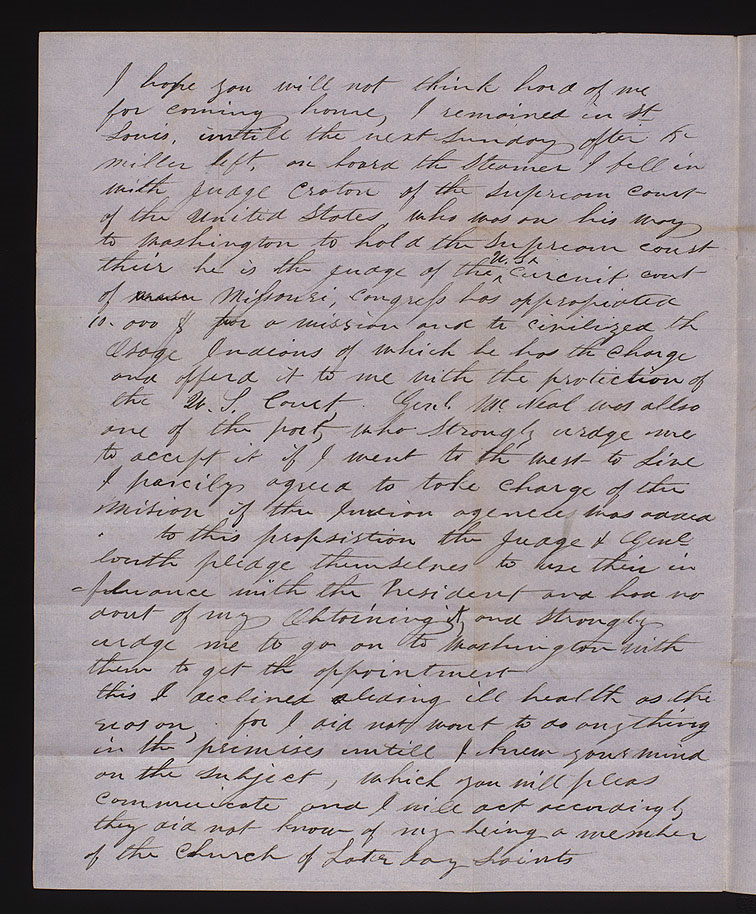 I hope you will not think hord of me
for coming home, I remained in St
Louis, untill the next Sunday after Br
Miller left. on board the Steamer I fell in
with Judge Croton of the Supream Court
of the United States who was on his way
to Washington to hold the Supream court
their he is the judge of the U. S. Curcuit court
of Missouri, Congress has appropiated
10.000 $ for a mission and to civilized th
Osage Indians of which he has th Charge
and offerd it to me with the protiction of
the U. S. Court. Genl. McNeal was allso
one of the poety who strongly urdge me
to accept it if I went to th west to Live
I parcily agreed to take charge of the
Mission if the Indian agencies was added
to this propsistion the Judge & Genl
bouth pledge themselves to use their in
-fluance with the President and had no
dout of my Obtoining it and strongly
urdge me to go on to Washington with
them to get th appointment
this I declined pleding ill health as the
reason, for I did not wont to do anything
in th primises untill I knew your mind
on the subject, which you will pleas
Communicate and I will act accordingly
they did not know of my being a member
of the Church of Later day Saints